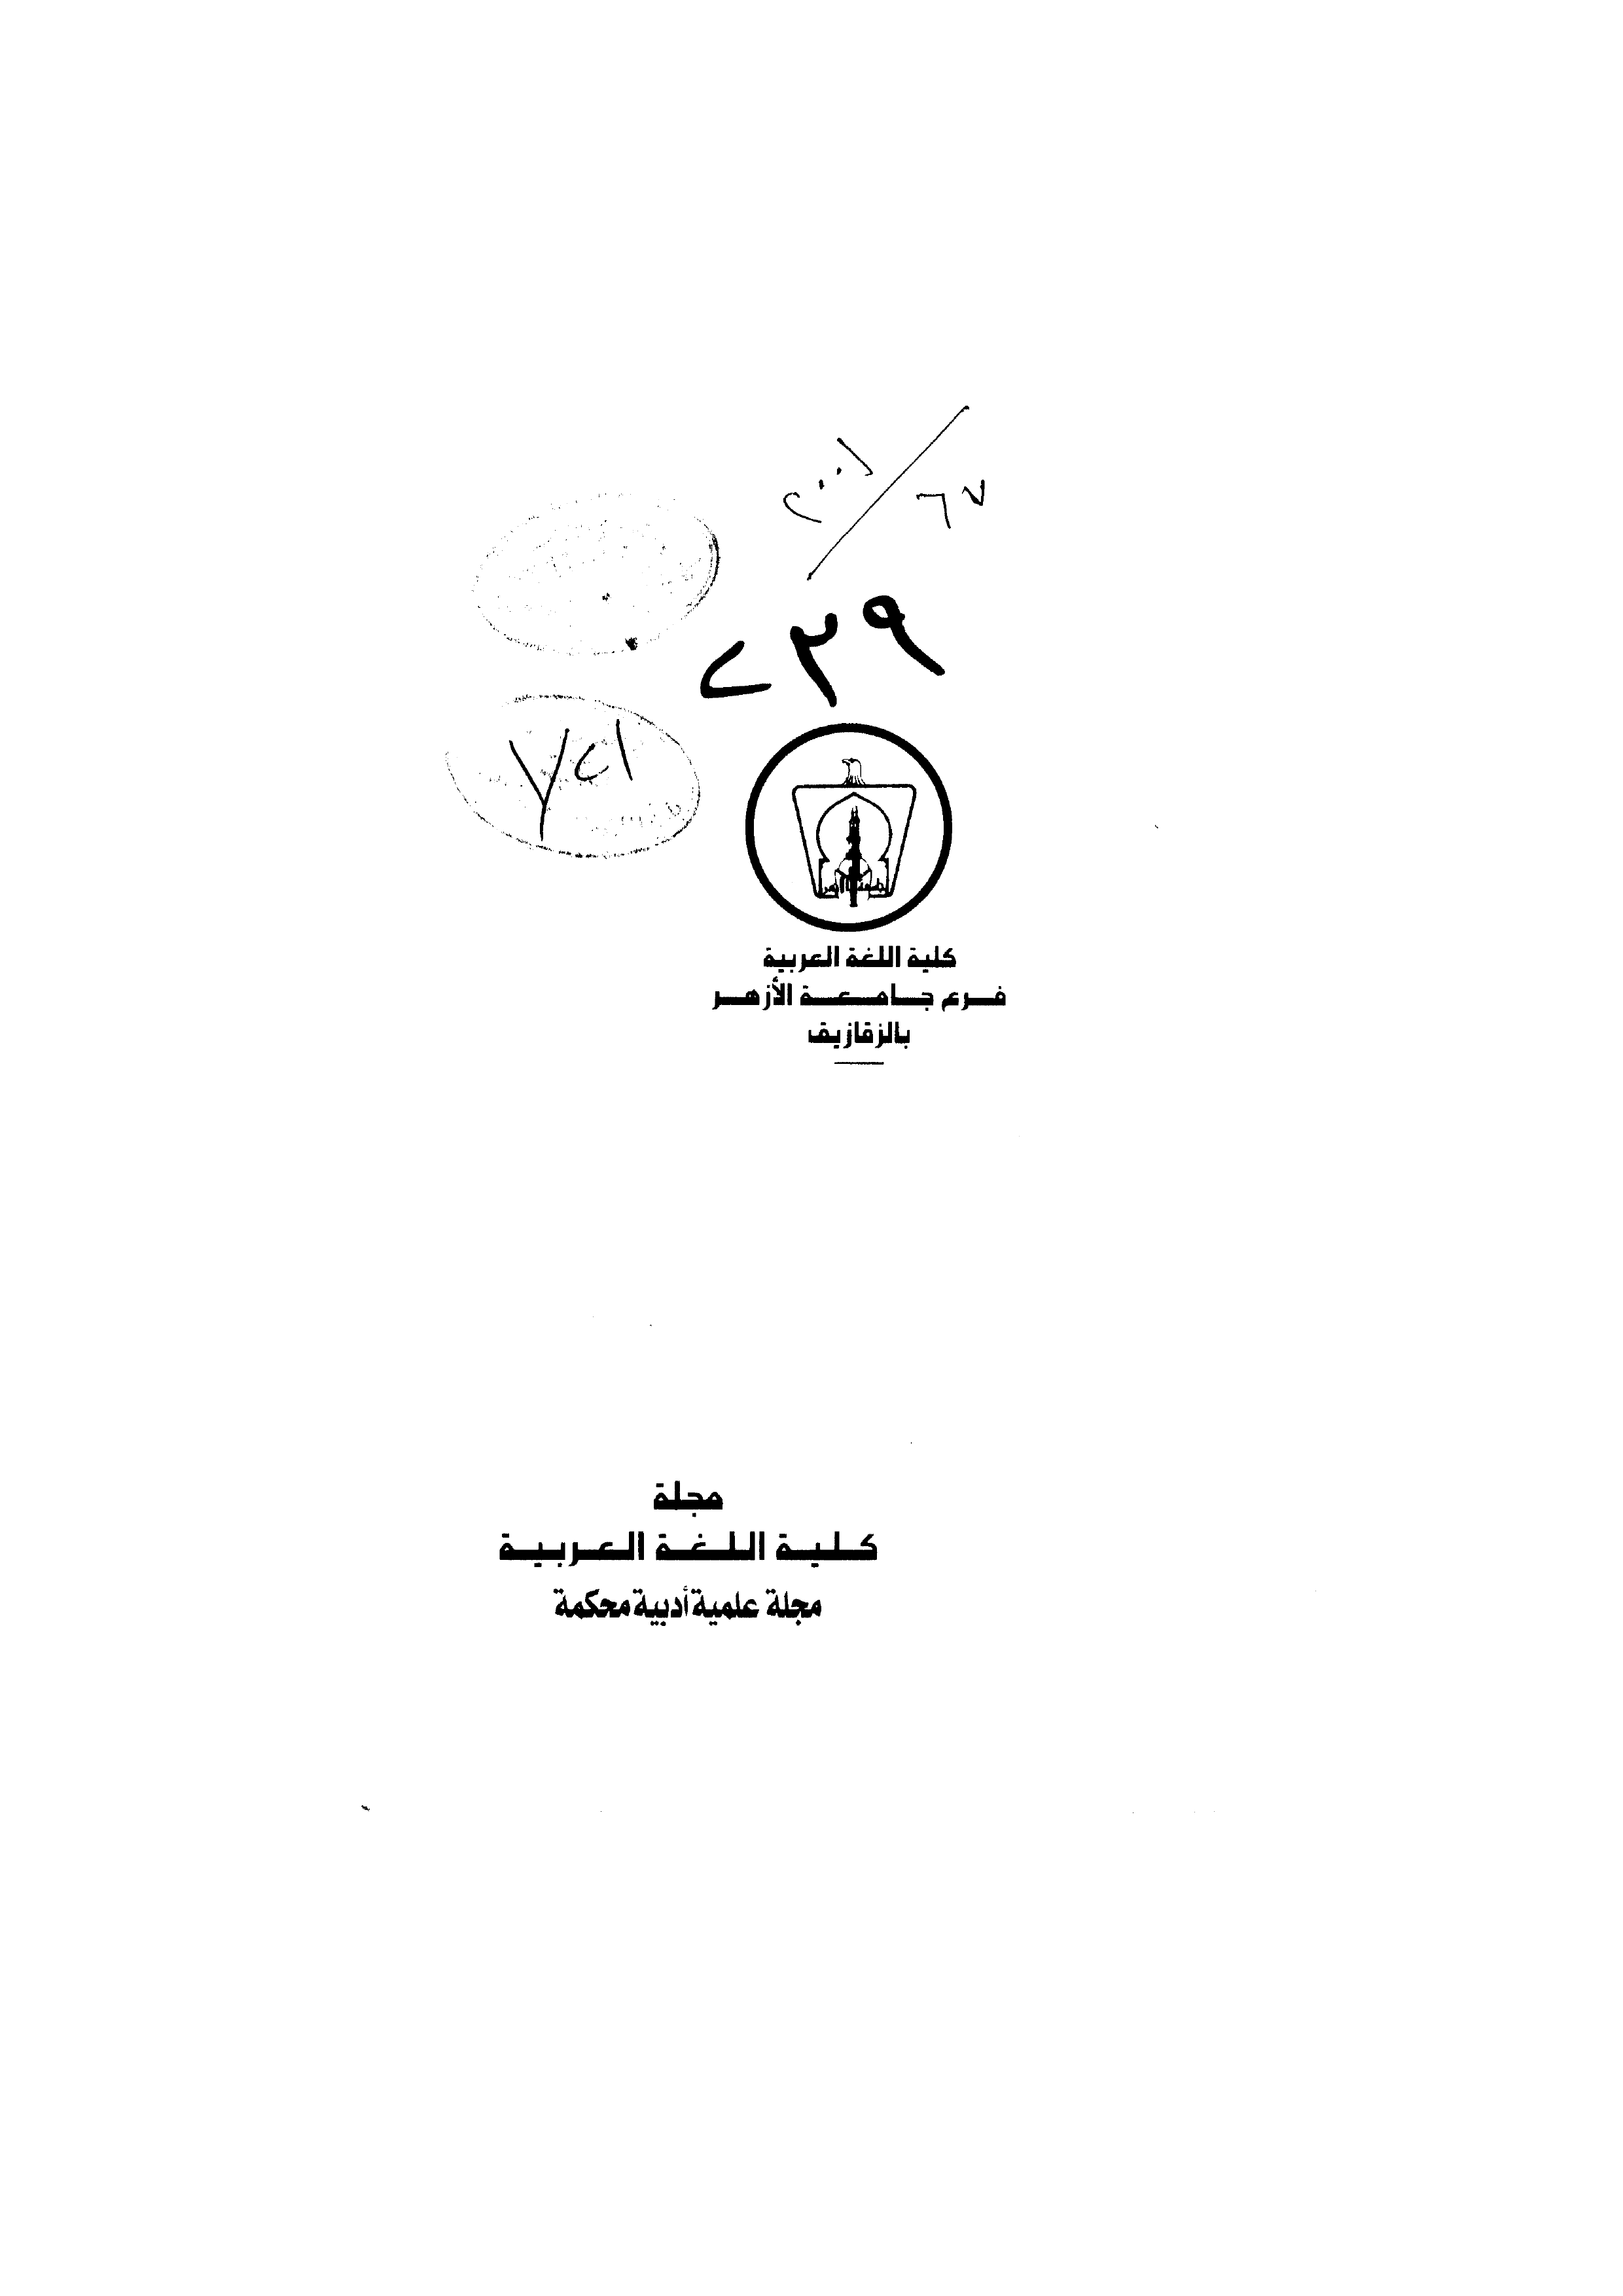 ٢٠٠١
٦٧
٢٣٩
٧٢١
كلية اللغة العربية
فرع جامعة الأزهر
بالزقازيق
مجلة
كلية اللغة العربية
مجلة علمية أدبية محكمة